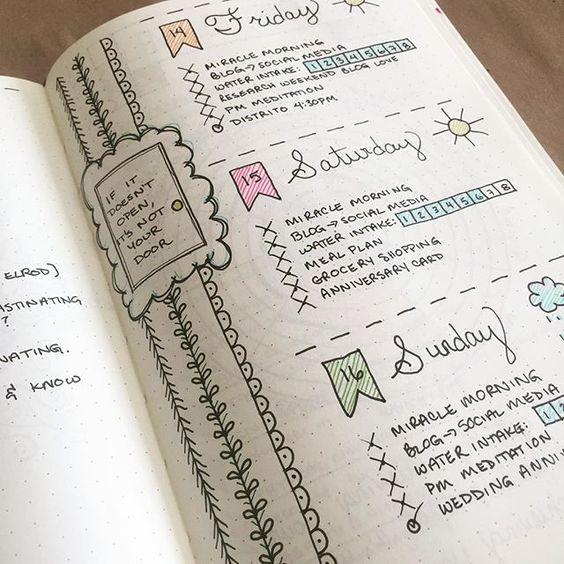 ELROD)
?
& KNOW
IF IT
DOESN'T
OPEN,
IT'S NOT
YOUR
DOOR
14
Friday
MIRACLE MORNING
BLOG → SOCIAL MEDIA
WATER INTAKE: 1 2 3 4 5 6 7 8
RESEARCH WEEKEND BLOG LOVE
PM MEDITATION
DISTRITO 4:30PM
15
Saturday
MIRACLE MORNING
BLOG → SOCIAL MEDIA
WATER INTAKE: 1 2 3 4 5 6 7 8
MEAL PLAN
GROCERY SHOPPING
ANNIVERSARY CARD
16
Sunday
MIRACLE MORNING
BLOG → SOCIAL MEDIA
WATER INTAKE: 1
PM MEDITATION
WEDDING ANNI